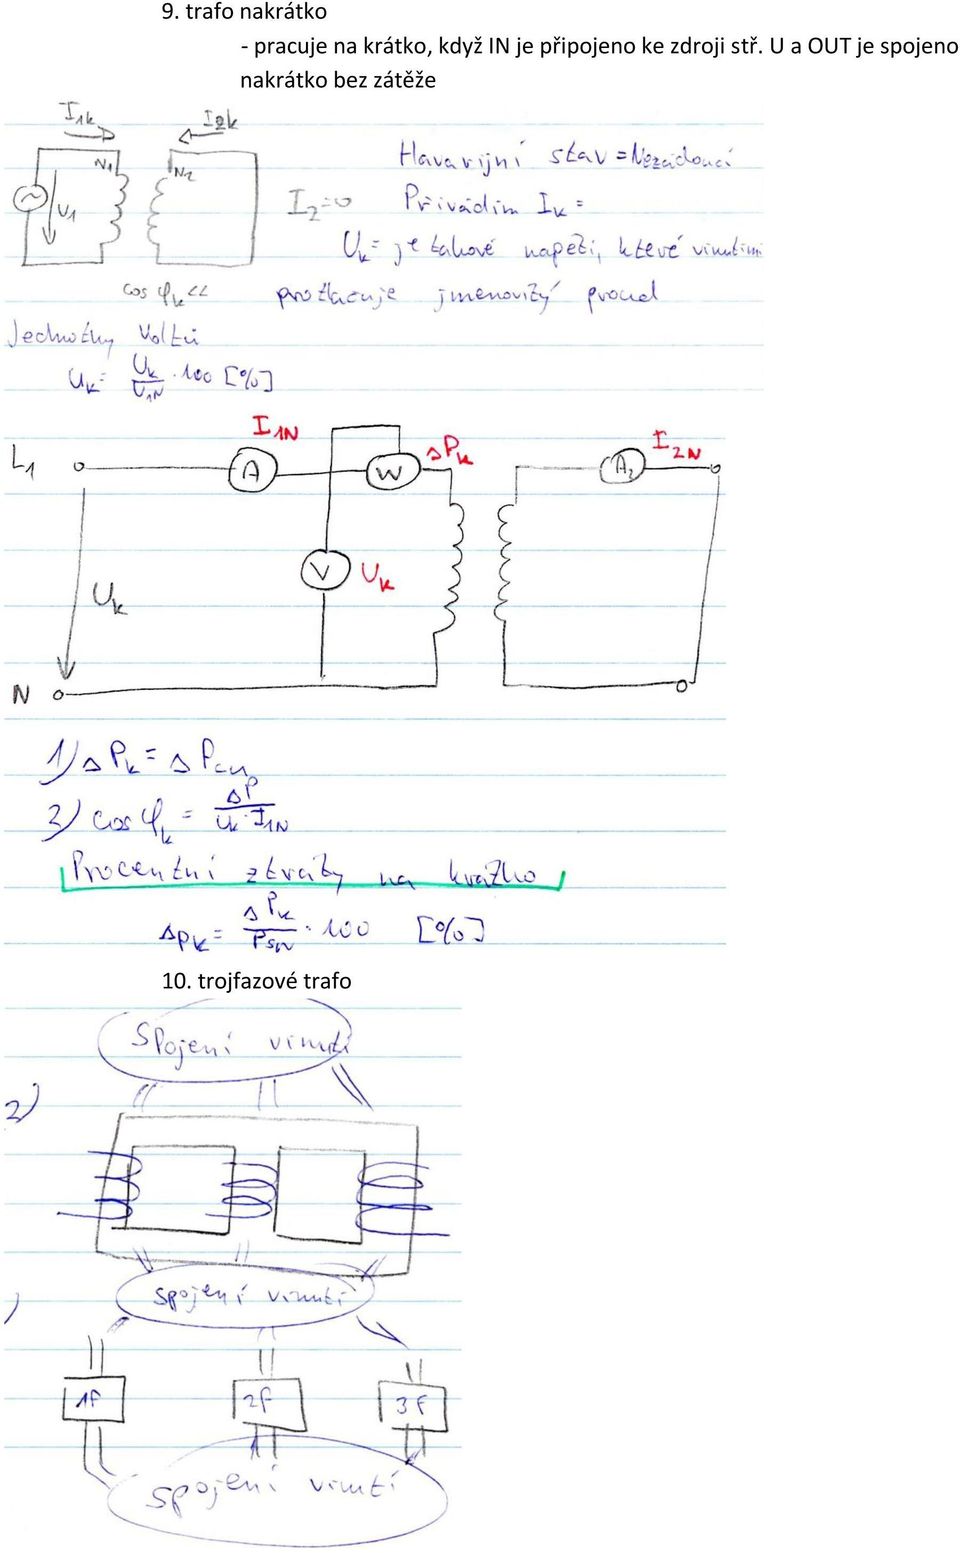 9. trafo nakrátko
- pracuje na krátko, když IN je připojeno ke zdroji stř. U a OUT je spojeno
nakrátko bez zátěže
I1k I2k
N1 N2
U1
Havarijní stav = Nezádoucí
I2=0 Přivádím Ik =
Uk = je takové napětí, které vinutím
cos φk << protlačuje jmenovitý proud
Jednotky Voltů
uk = Uk/U1N · 100 [%]
I1N
L1 A W ΔPk A2 I2N
V Uk
Uk
N
1) ΔPk = ΔPcu
3) cos φk = ΔP/Uk·I1N
Procentní ztráty na krátko
Δpk = ΔPk/PSN · 100 [%]
10. trojfazové trafo
Spojení vinutí
2)
spojení vinutí
)
1F 2F 3F
spojení vinutí